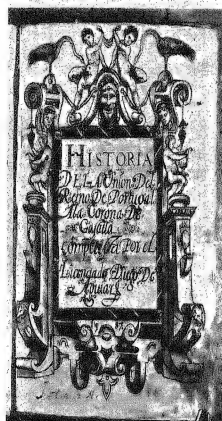 HISTORIA
DE LA Union Del
Reino De Portugal
A la Corona De
Castilla
compuesta Por el
Licenciado Diego De
Aguiar